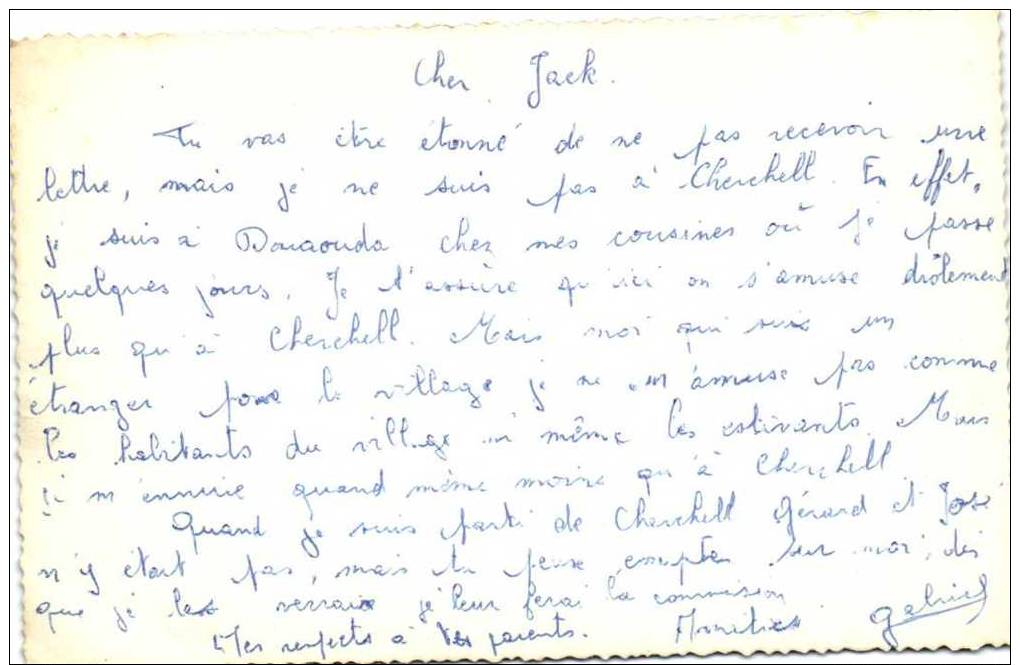 Cher Jack.
Tu vas être étonné de ne pas recevoir une
lettre, mais je ne suis pas à Cherchell. En effet,
je suis à Douaouda chez mes cousines où je passe
quelques jours. Je t'assure qu'ici on s'amuse drôlement
plus qu'à Cherchell. Mais moi qui suis un
étranger pour le village je ne m'amuse pas comme
les habitants du village ni même les estivants. Mais
je m'ennuie quand même moins qu'à Cherchell
Quand je suis parti de Cherchell Gérard et José
n'y était pas, mais tu peux compter sur moi, dès
que je les verrai je leur ferai la commission
Mes respects à tes parents. Amitiés Gabriel